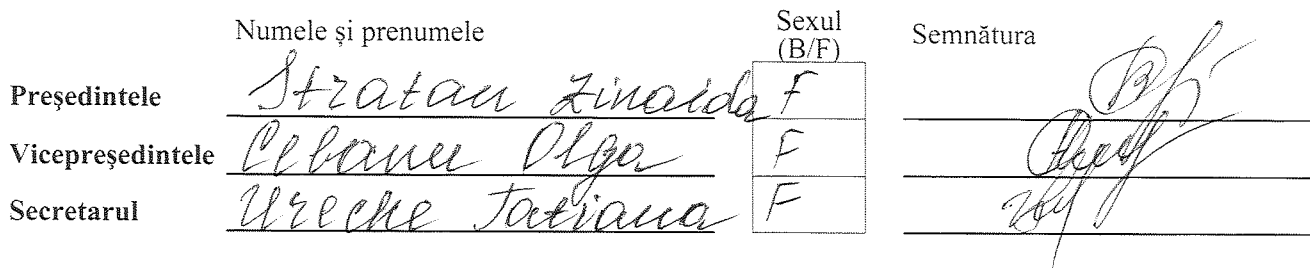 Numele și prenumele Sexul (B/F) Semnătura
Președintele Stratan Zinaida F
Vicepreședintele Cebanu Olga F
Secretarul Ureche Tatiana F